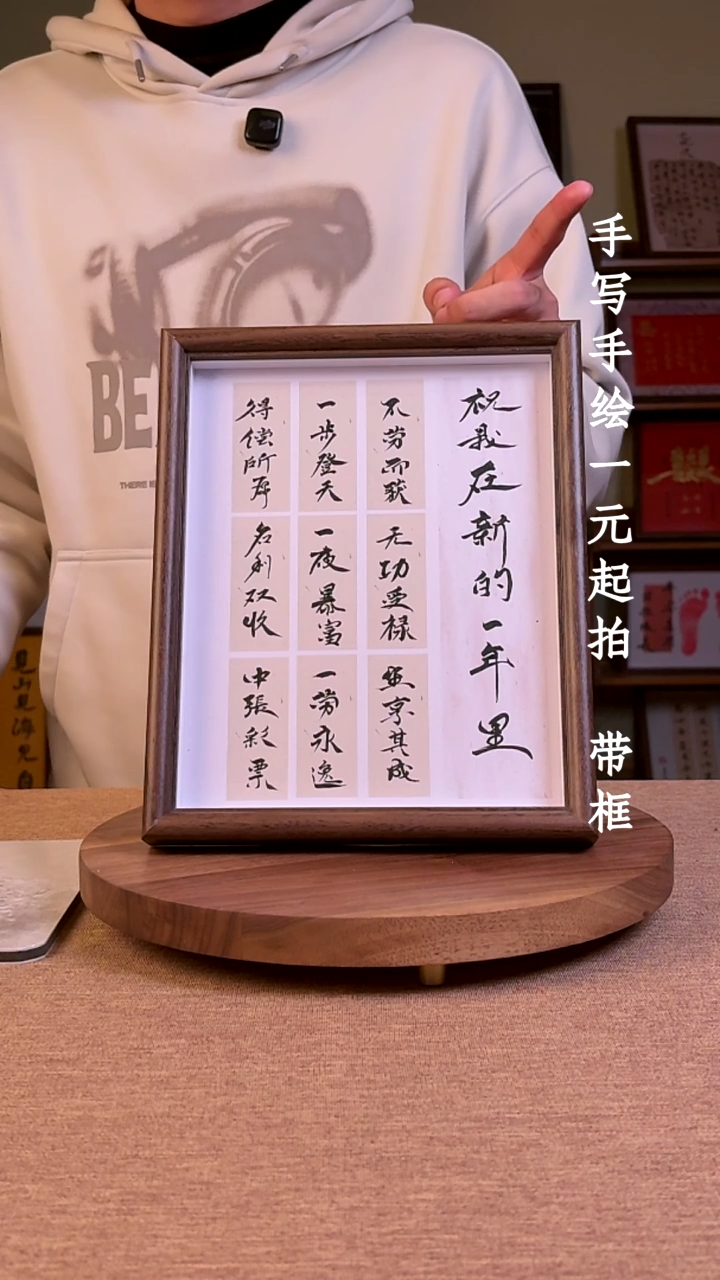 祝我在新的一年里
不劳而获
无功受禄
坐享其成
一步登天
一夜暴富
一劳永逸
得偿所愿
名利双收
中张彩票
手写手绘一元起拍 带框
BE
THERE IS